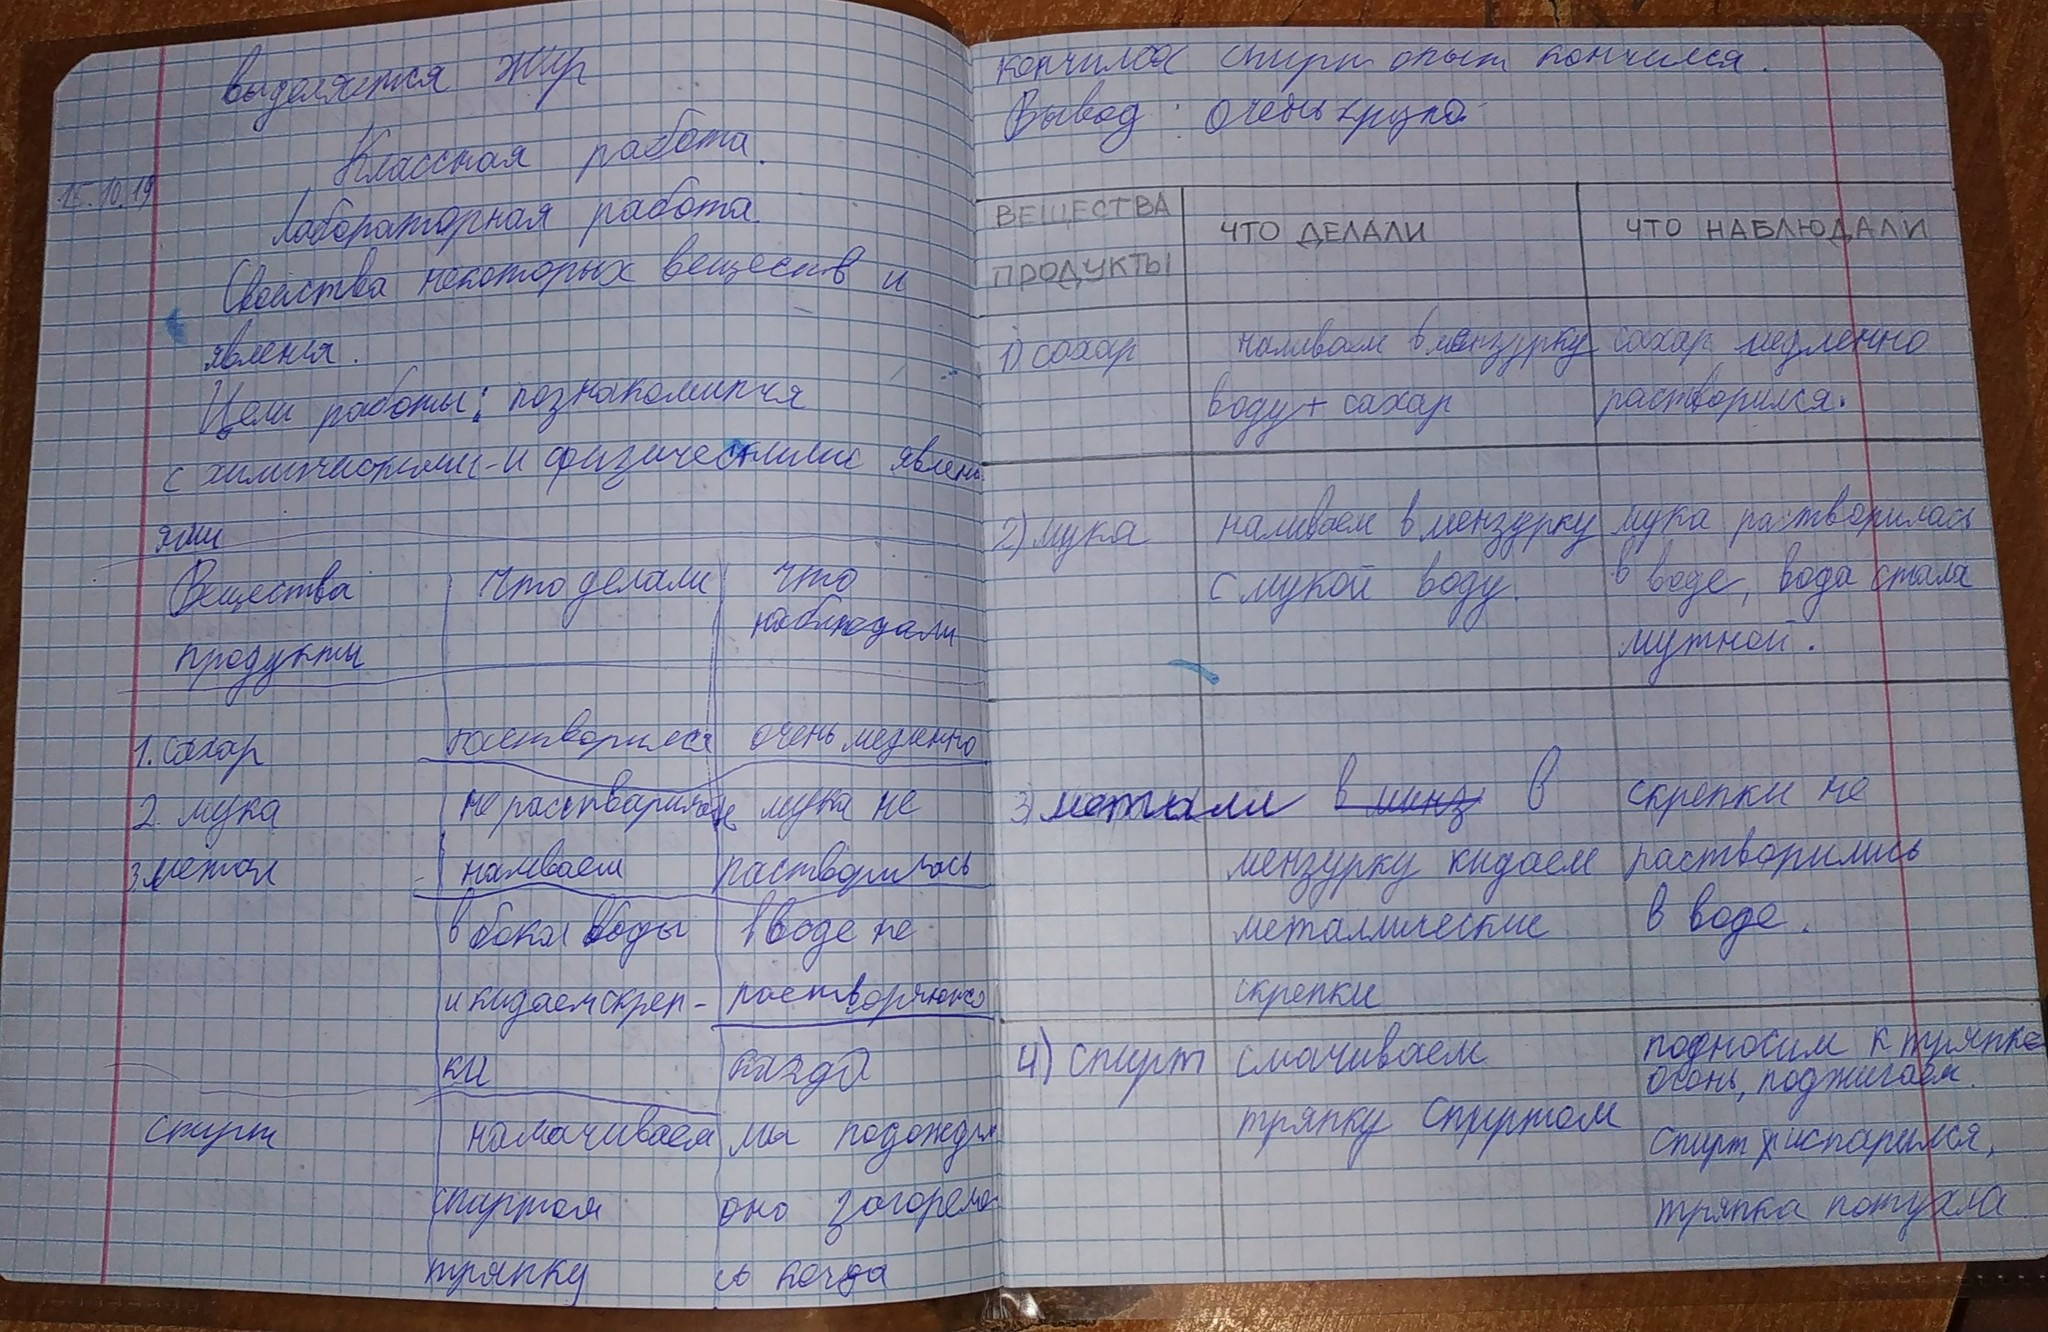 выделяется жир
Классная работа.
15.10.19
Лабораторная работа.
Свойства некоторых веществ и
явления.
Цели работы: познакомится
с химическими и физическими явлени
ями
Вещества
продукты
Что делали
что
наблюдали
1. сахар
растворился
очень медленно
2. мука
не растварилась
мука не
растворилась
3 метал
наливаем
в бокал воды
и кидаем скреп-
ки
в воде не
растворяются
спирт
намачиваем
спиртом
тряпку
когда
мы подожгли
оно загорело
сь когда
кончился спирт опыт кончился.
Вывод: очень круто
ВЕЩЕСТВА
ПРОДУКТЫ
ЧТО ДЕЛАЛИ
ЧТО НАБЛЮДАЛИ
1) сахар
наливаем в мензурку
воду + сахар
сахар медленно
растворился.
2) мука
наливаем в мензурку
с мукой воду.
мука растворилась
в воде, вода стала
мутной.
3) металл
в менз в
мензурку кидаем
металлические
скрепки
скрепки не
растворились
в воде.
4) спирт
смачиваем
тряпку спиртом
подносим к тряпке
огонь, поджигаем.
спирт испарился,
тряпка потухла